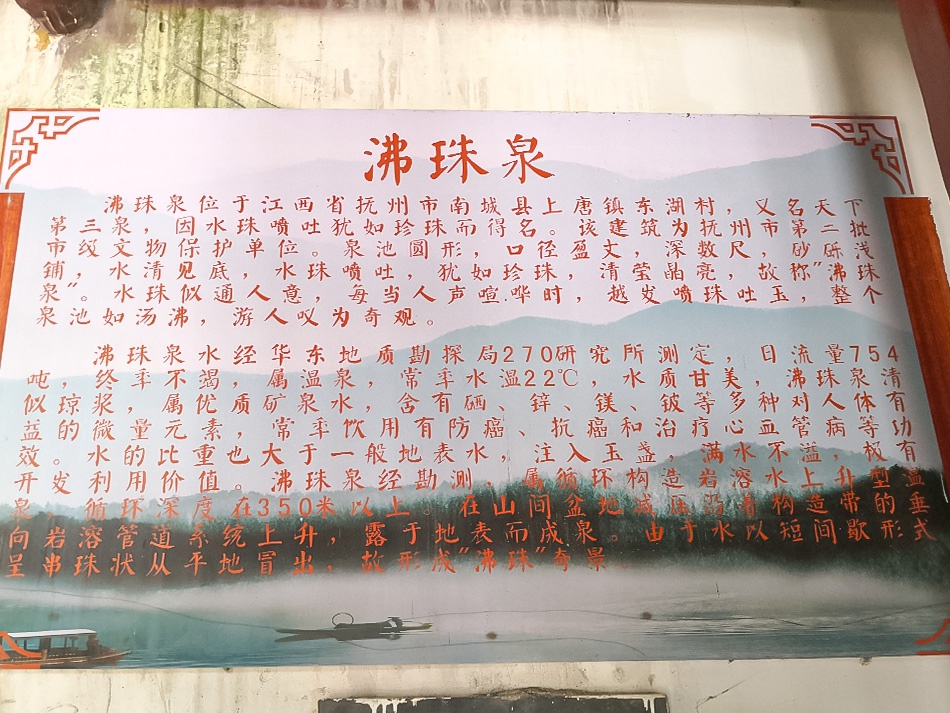 沸珠泉
沸珠泉位于江西省抚州市南城县上唐镇东湖村，又名天下
第三泉，因水珠喷吐犹如珍珠而得名。该建筑为抚州市第二批
市级文物保护单位。泉池圆形，口径盈丈，深数尺，砂砾浅
铺，水清见底，水珠喷吐，犹如珍珠，清莹晶亮，故称"沸珠
泉"。水珠似通人意，每当人声喧哗时，越发喷珠吐玉，整个
泉池如汤沸，游人叹为奇观。
沸珠泉水经华东地质勘探局270研究所测定，日流量754
吨，终年不竭，属温泉，常年水温22℃，水质甘美，沸珠泉清
似琼浆，属优质矿泉水，含有硒、锌、镁、铍等多种对人体有
益的微量元素，常年饮用有防癌、抗癌和治疗心血管病等功
效。水的比重也大于一般地表水，注入玉盏，满水不溢，极有
开发利用价值。沸珠泉经勘测，属循环构造岩溶水上升型温
泉，循环深度在350米以上。在山间盆地减压沿着构造带的垂
向岩溶管道系统上升，露于地表而成泉。由于水以短间歇形式
呈串珠状从平地冒出，故形成"沸珠"奇景。